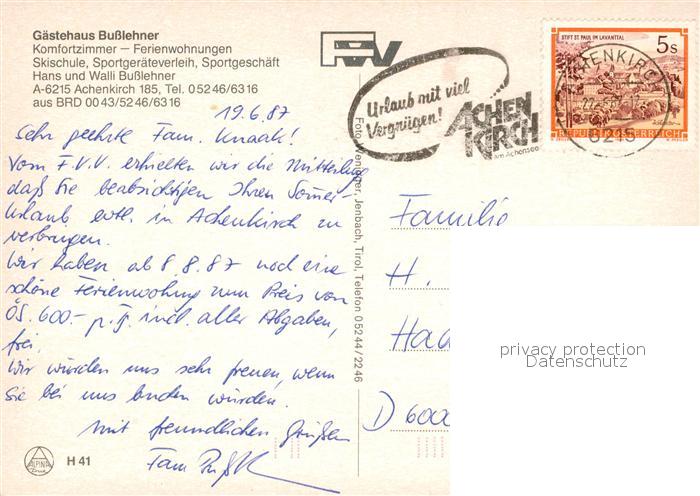 Gästehaus Bußlehner
Komfortzimmer — Ferienwohnungen
Skischule, Sportgeräteverleih, Sportgeschäft
Hans und Walli Bußlehner
A-6215 Achenkirch 185, Tel. 05246/6316
aus BRD 0043/5246/6316
19.6.87
Sehr geehrte Fam. Knaak!
Vom F.V.V. erhielten wir die Mitteilung
daß Sie beabsichtigen Ihren Somer-
Urlaub evtl. in Achenkirch zu
verbringen.
Wir haben ab 8.8.87 noch eine
schöne Ferienwohnung zum Preis von
ÖS. 600.- p.T. incl. aller Abgaben,
frei.
Wir würden uns sehr freuen, wenn
sie bei uns buchen würden.
Mit freundlichen Grüßen
Fam
ALPINA
H 41
Foto Jenbach, Tirol, Telefon 05244/2246
FVV
Urlaub mit viel
Vergnügen!
ACHEN
KIRCH
am Achensee
STIFT ST. PAUL IM LAVANTTAL
5s
REPUBLIK ÖSTERREICH
ACHENKIRCH
6215
Familie
H.
Haa
D 6000
privacy protection
Datenschutz